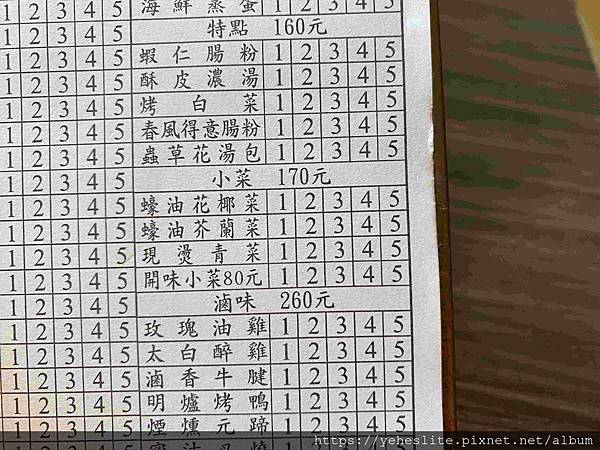 1 2 3 4 5 海鮮蒸蛋 1 2 3 4 5
1 2 3 4 5 特點 160元
1 2 3 4 5 蝦仁腸粉 1 2 3 4 5
1 2 3 4 5 酥皮濃湯 1 2 3 4 5
1 2 3 4 5 烤白菜 1 2 3 4 5
1 2 3 4 5 春風得意腸粉 1 2 3 4 5
1 2 3 4 5 蟲草花湯包 1 2 3 4 5
1 2 3 4 5 小菜 170元
1 2 3 4 5 蠔油花椰菜 1 2 3 4 5
1 2 3 4 5 蠔油芥蘭菜 1 2 3 4 5
1 2 3 4 5 現燙青菜 1 2 3 4 5
1 2 3 4 5 開味小菜80元 1 2 3 4 5
1 2 3 4 5 滷味 260元
1 2 3 4 5 玫瑰油雞 1 2 3 4 5
1 2 3 4 5 太白醉雞 1 2 3 4 5
1 2 3 4 5 滷香牛腱 1 2 3 4 5
1 2 3 4 5 明爐烤鴨 1 2 3 4 5
1 2 3 4 5 煙燻元蹄 1 2 3 4 5
https://yeheslite.pixnet.net/album